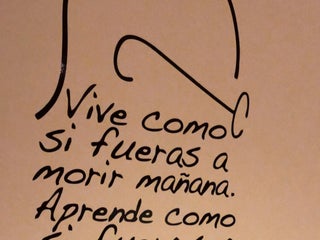 Vive como
si fueras a
morir mañana.
Aprende como
si